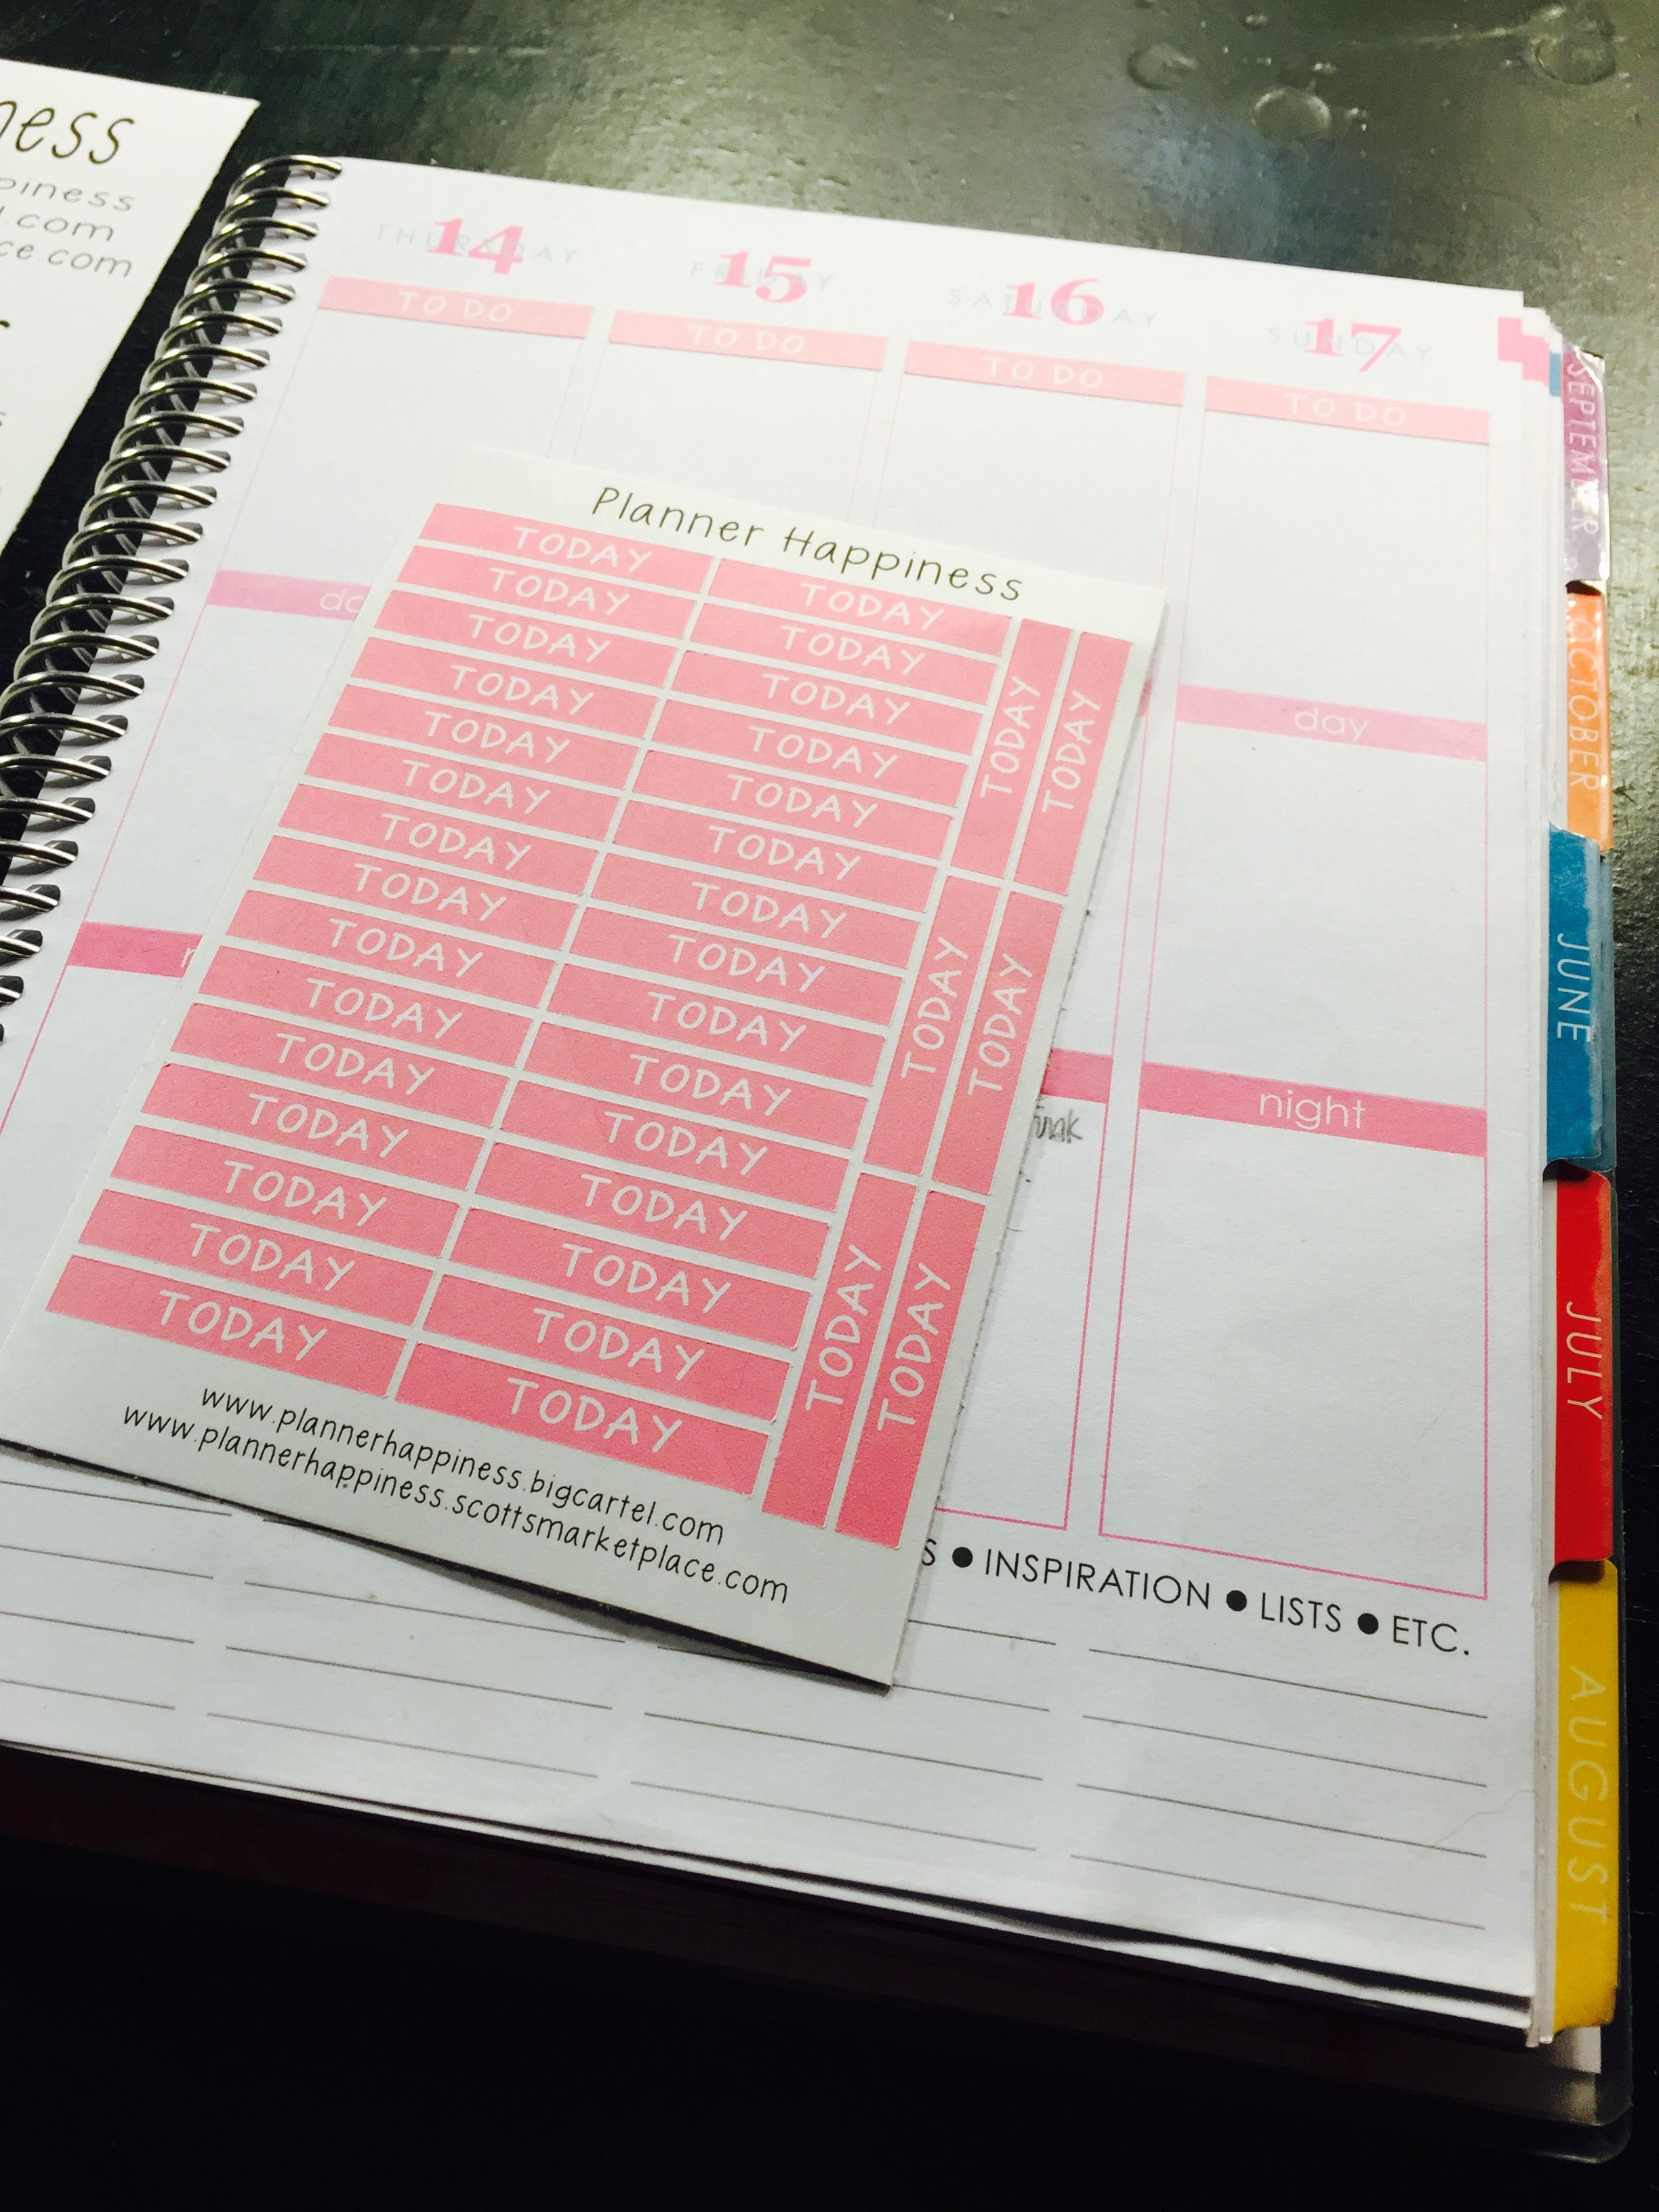 ness
piness
.com
ce.com
THURSDAY 14
FRIDAY 15
SATURDAY 16
SUNDAY 17
TO DO
TO DO
TO DO
TO DO
day
night
S • INSPIRATION • LISTS • ETC.
Planner Happiness
TODAY TODAY
TODAY TODAY
TODAY TODAY
TODAY TODAY
TODAY TODAY
TODAY TODAY
TODAY TODAY
TODAY TODAY
TODAY TODAY
TODAY TODAY
TODAY TODAY
TODAY TODAY
TODAY TODAY
TODAY TODAY
TODAY TODAY
TODAY TODAY
TODAY TODAY
TODAY TODAY
www.plannerhappiness.bigcartel.com
www.plannerhappiness.scottsmarketplace.com
SEPTEMBER
OCTOBER
JUNE
JULY
AUGUST